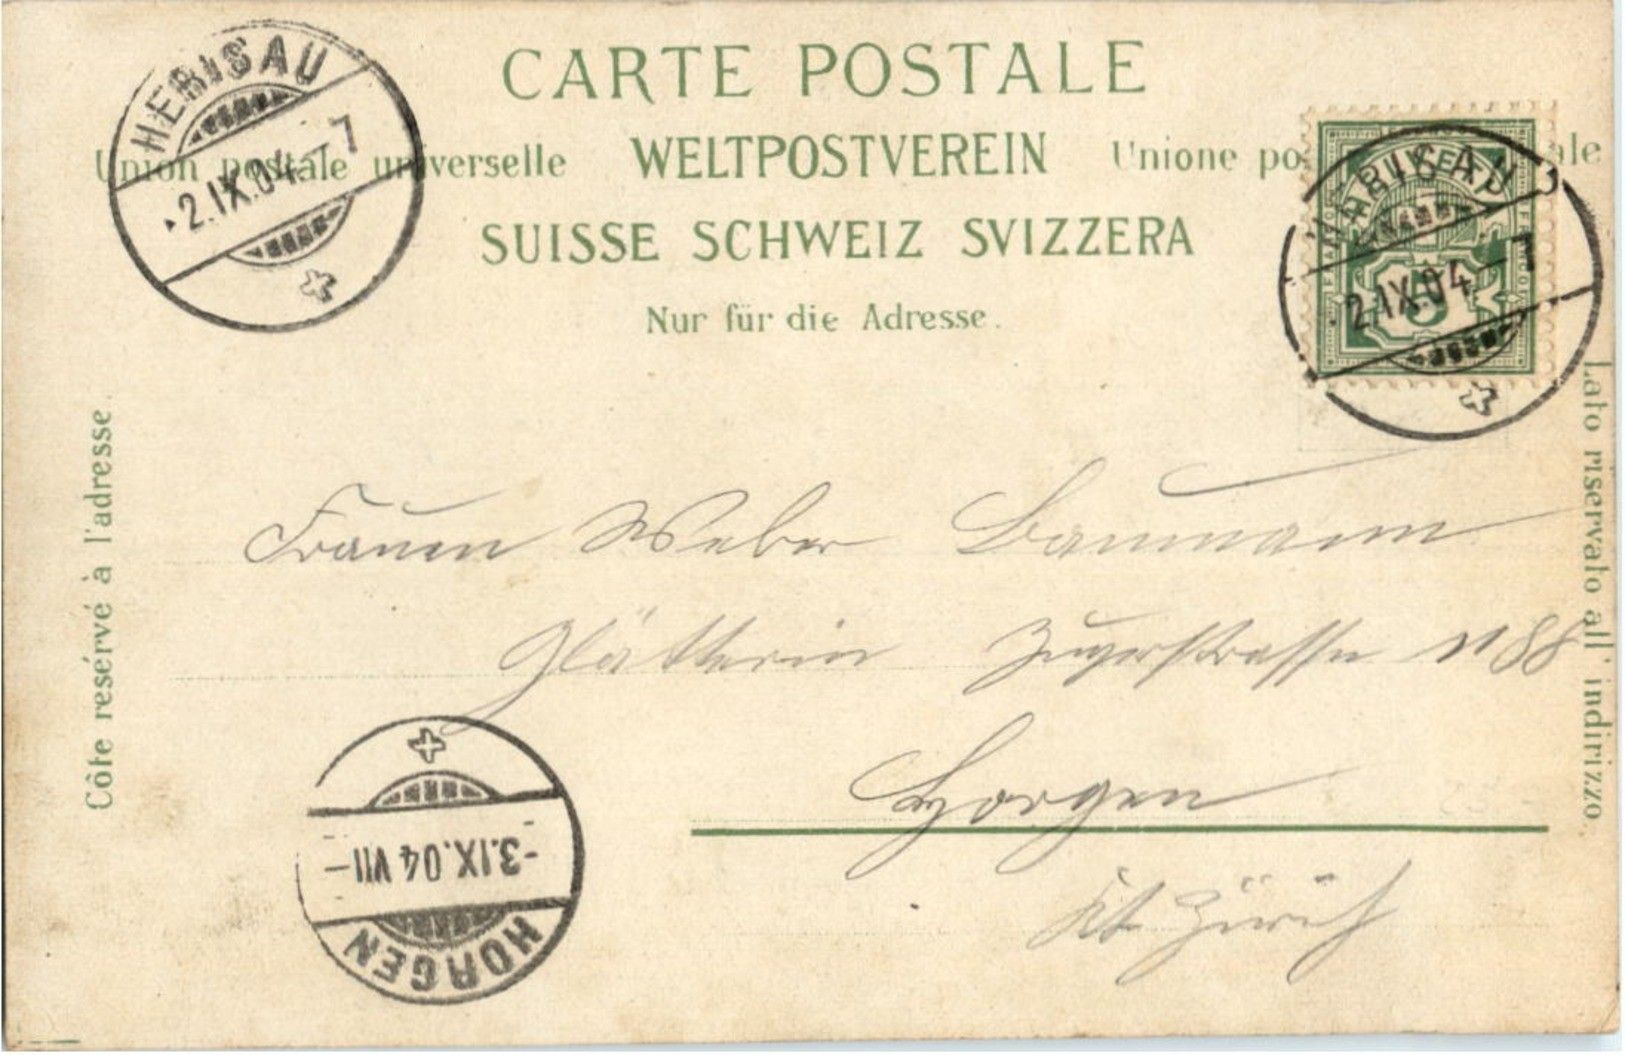 CARTE POSTALE
Union postale universelle WELTPOSTVEREIN Unione po ale
SUISSE SCHWEIZ SVIZZERA
Nur für die Adresse.
HERISAU
2.IX.04.-7
HERISAU
2.IX.04-7
HELVETIA
FRANCO
5
Côte resérvé à l'adresse.
Lato riservato all' indirizzo.
Frauen Weber Baumann
Glätterin Zugerstrasse N 88
Horgen
Kt. Zürich
-3.IX.04 VII-
HORGEN